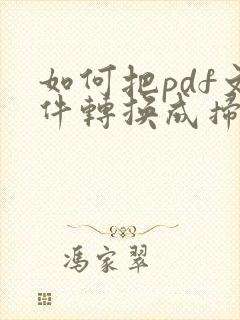 如何把pdf文
件轉換成掃
馮家翠